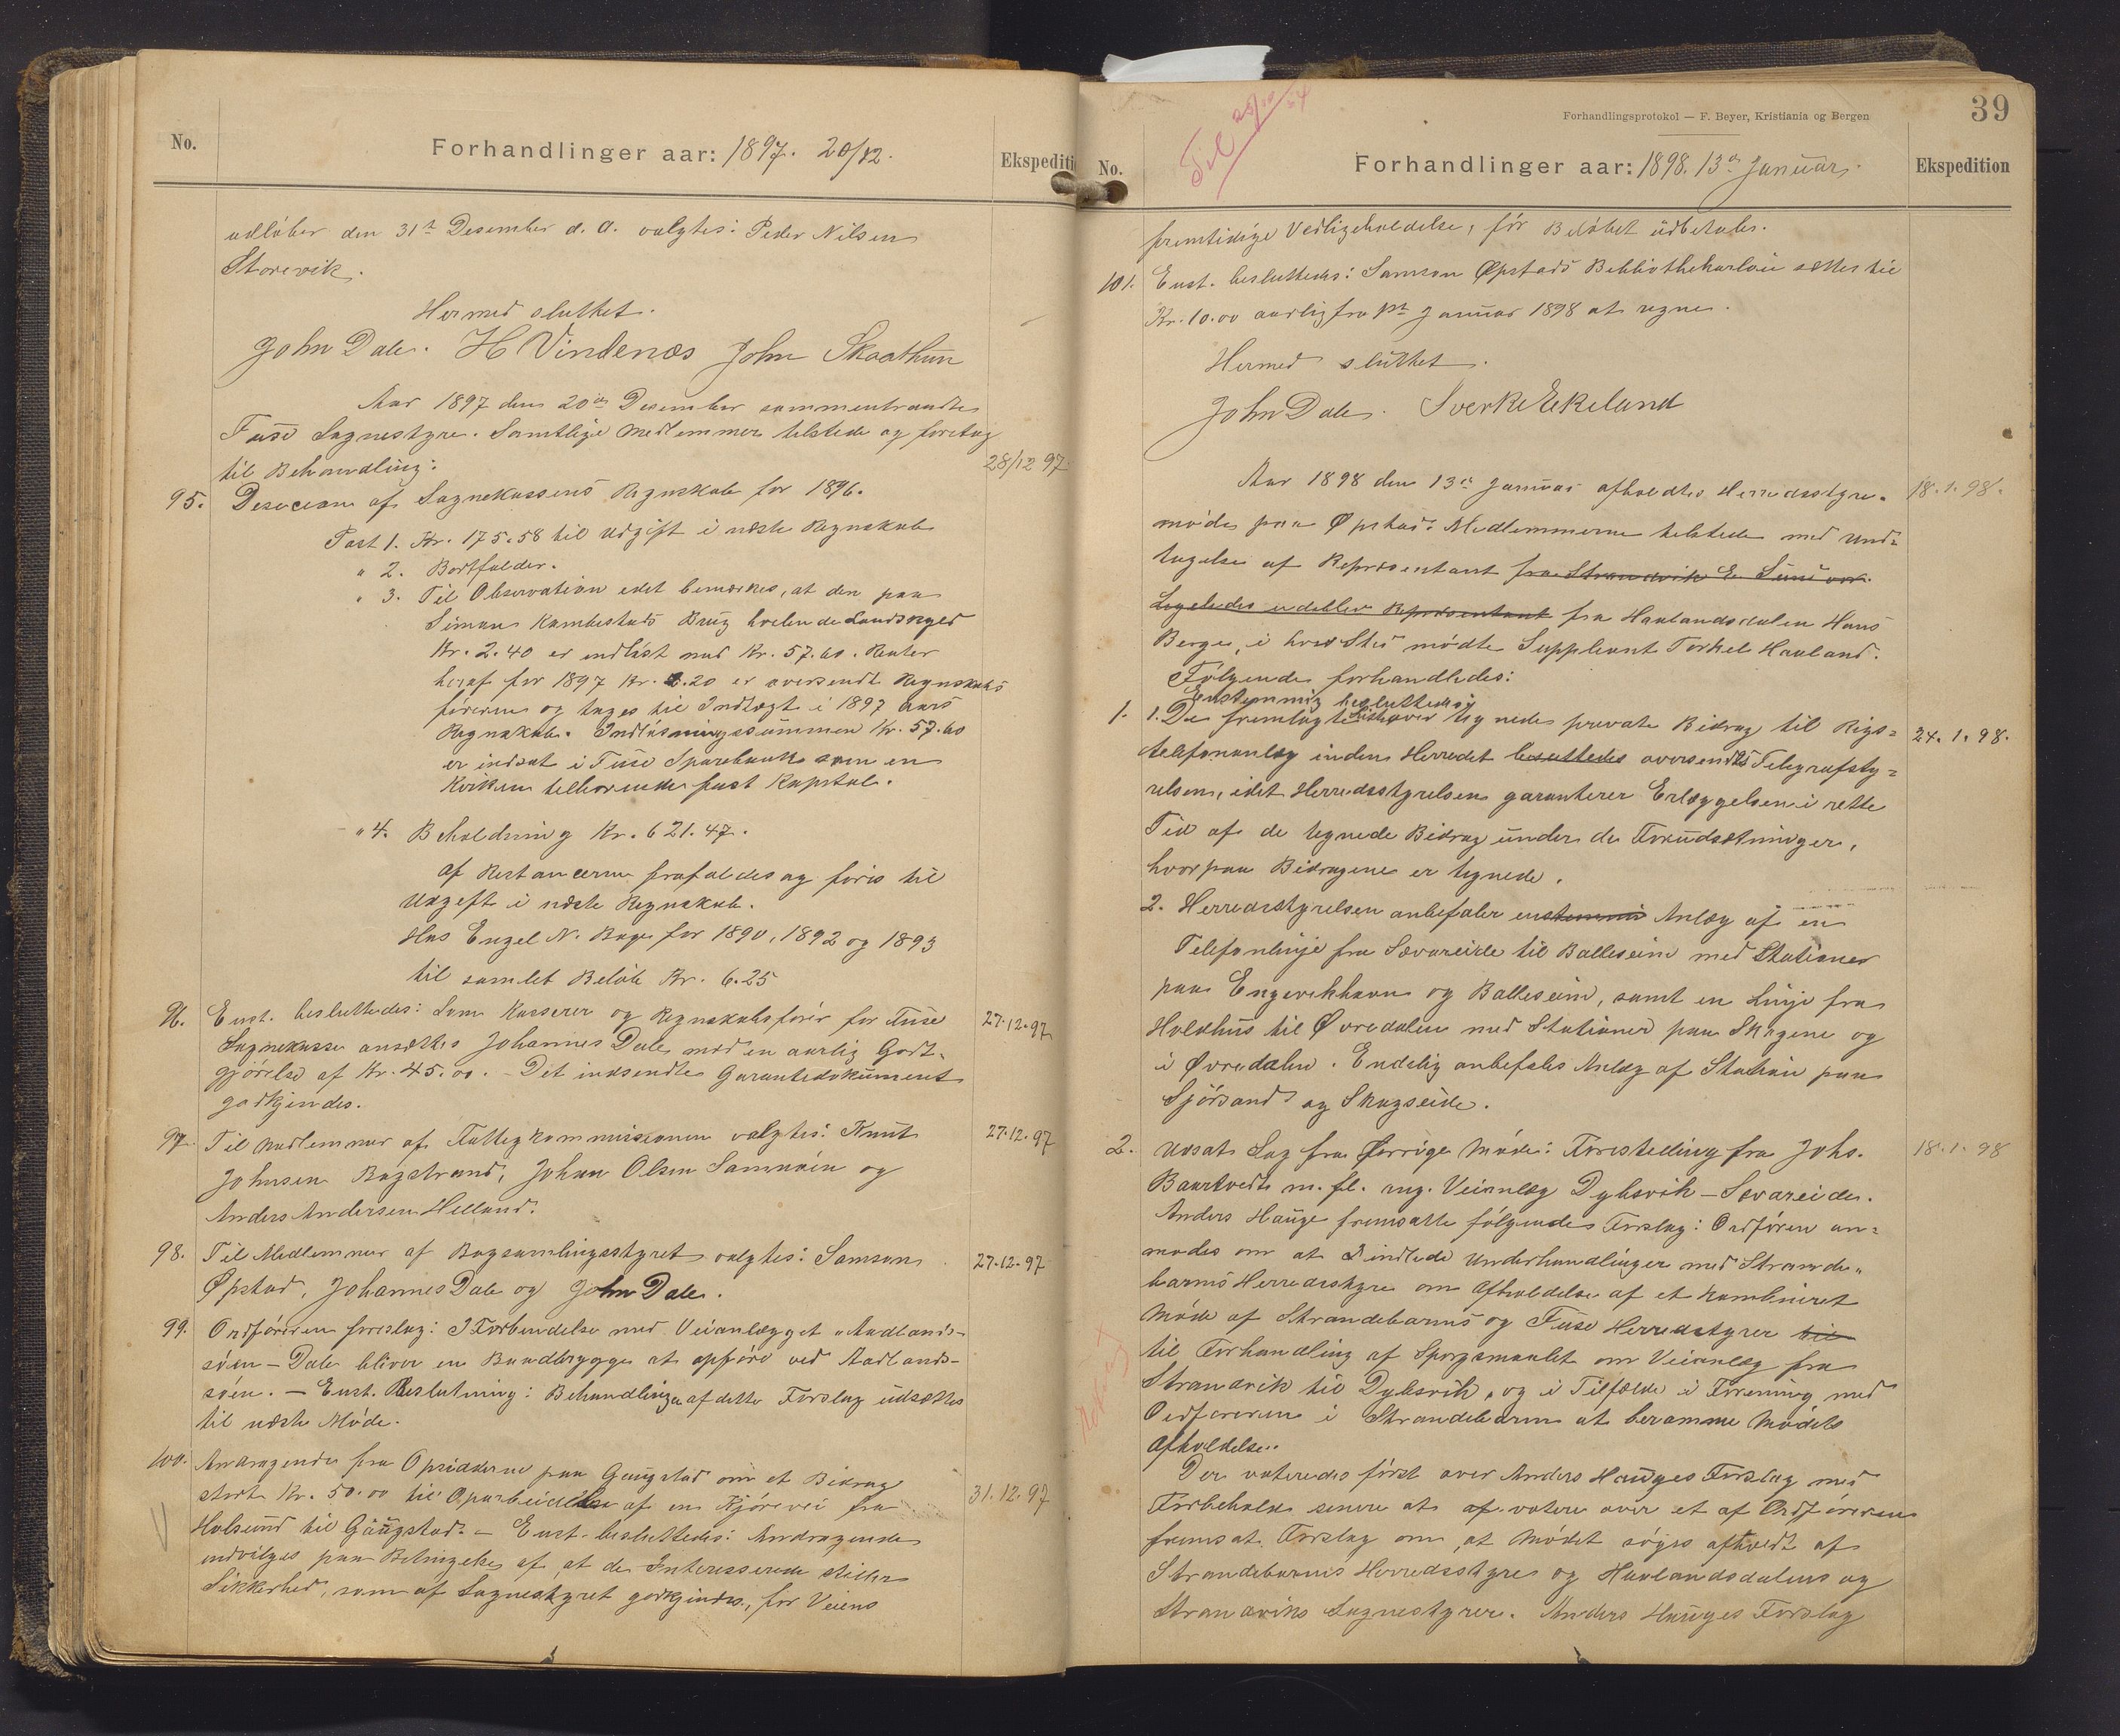 No.
Forhandlinger aar: 1897. 20/12.
Ekspediti
udløber den 31te Desember d. A. valgtes: Peder Nilsen
Storevik.
Hermed sluttet.
John Dale. H Vindenæs John Skaathun
Aar 1897 den 20de Desember sammentraadte
Fuse Sognestyre. Samtlige Medlemmer tilstede og foretog
til Behandling:
28/12 97.
95. Desicion af Sognekassens Regnskab for 1896.
Post 1. Kr. 175.58 til Udgift i næste Regnskab
" 2. Bortfalder.
" 3. Til Observation idet bemærkes, at den paa
Simon Kambestads Brug hvilende Landskyld
Kr. 2.40 er indløst med Kr. 57.60. Renter
heraf for 1897 Kr. 2.20 er oversendt Regnskabs
føreren og tages til Indtægt i 1897 Aars
Regnskab. Indløsningssummen Kr. 57.60
er indsat i Fuse Sparebank som en
Kirken tilhørende fast Kapital.
" 4. Beholdning Kr. 621.47.
af Restancerne frafaldes og føres til
Udgift i næste Regnskab.
Hos Engel N. Berge for 1890, 1892 og 1893
til samlet Beløb Kr. 6.25
96. Enst. besluttedes: Som Kasserer og Regnskabsfører for Fuse 27.12.97
Sognekasse ansættes Johannes Dale mod en aarlig Godt-
gjørelse af Kr. 45.00. - Det indsendte Garantidokument
godkjendes.
97. Til Medlemmer af Fattigkommissionen valgtes: Knut 27.12.97
Johnsen Bogstrand, Johan Olsen Samnøen og
Anders Andersen Helland.
98. Til Medlemmer af Bogsamlingsstyret valgtes: Samson 27.12.97
Øpstad, Johannes Dale og John Dale.
99. Ordføreren foreslog: I Forbindelse med Veianlægget "Aadlands-
søen - Dale bliver en Baadbrygge at opføre ved Aadlands-
søen. - Enst. Beslutning: Behandlingen af dette Forslag udsættes
til næste Møde.
100. Andragende fra Opsidderne paa Gaugstad om et Bidrag
stort Kr. 50.00 til Oparbeidelse af en Kjørevei fra 31.12.97
Holsund til Gaugstad. - Enst. besluttedes: Andragende
indvilges paa Betingelse af, at de Interesserede stiller
Sikkerhed, som af Sognestyret godkjendes, for Veiens
Til 28/10 54
Forhandlingsprotokol — F. Beyer, Kristiania og Bergen
39
No.
Forhandlinger aar: 1898. 13de Januar.
Ekspedition
fremtidige Vedligeholdelse, før Beløbet udbetales.
101. Enst. besluttedes: Samson Øpstads Bibliothekarløn sættes til
Kr. 10.00 aarlig fra 1ste Januar 1898 at regne.
Hermed sluttet.
John Dale. Sverke Ekeland
Aar 1898 den 13de Januar afholdtes Herredsstyre- 18.1.98.
møde paa Øpstad. Medlemmerne tilstede med Und-
tagelse af Repræsentant fra Strandvik E.
Ligeledes udeblev Repræsentant fra Haalandsdalen Hans
Berge, i hvis Sted mødte Suppleant Torkel Havland.
Følgende forhandledes:
Enstemmig besluttedes
1. 1. De fremlagte Lister over tegnede private Bidrag til Rigs- 24.1.98.
telefonanlæg inden Herredet besluttedes oversendtes Telegrafsty-
relsen, idet Herredsstyrelsen garanterer Erlæggelsen i rette
Tid af de tegnede Bidrag under de Forudsætninger,
hvorpaa Bidragene er tegnede.
2. Herredsstyrelsen anbefaler enstemmig Anlæg af en
Telefonlinje fra Sævareide til Balleseim med Stationer
paa Engevikhavn og Balleseim, samt en Linje fra
Holdhus til Øvredalen med Stationer paa Skogene og
i Øvredalen. Endelig anbefales Anlæg af Station paa
Sjørsand og Skogseide.
2. Udsat Sag fra Forrige Møde: Forestilling fra Johs. 18.1.98
Baartvedt m. fl. ang. Veianlæg Dybsvik - Sævareide.
Anders Hauge fremsatte følgende Forslag: Ordføren an-
modes om at indlede Underhandlinger med Strande-
barms Herredsstyre om Afholdelse af et kombineret
Møde af Strandebarms og Fuse Herredsstyrer til
til Forhandling af Spørgsmaalet om Veianlæg fra
Strandvik til Dybsvik, og i Tilfælde i Forening med
Ordføreren i Strandebarm at beramme Mødets
Afholdelse.
Der voteredes først over Anders Hauges Forslag med
Forbehold senere at af votere over et af Ordføreren
fremsat Forslag om, at Mødet søges afholdt af
Strandebarms Herredsstyre og Haalandsdalens og
Strandviks Sognestyrer. Anders Hauges Forslag